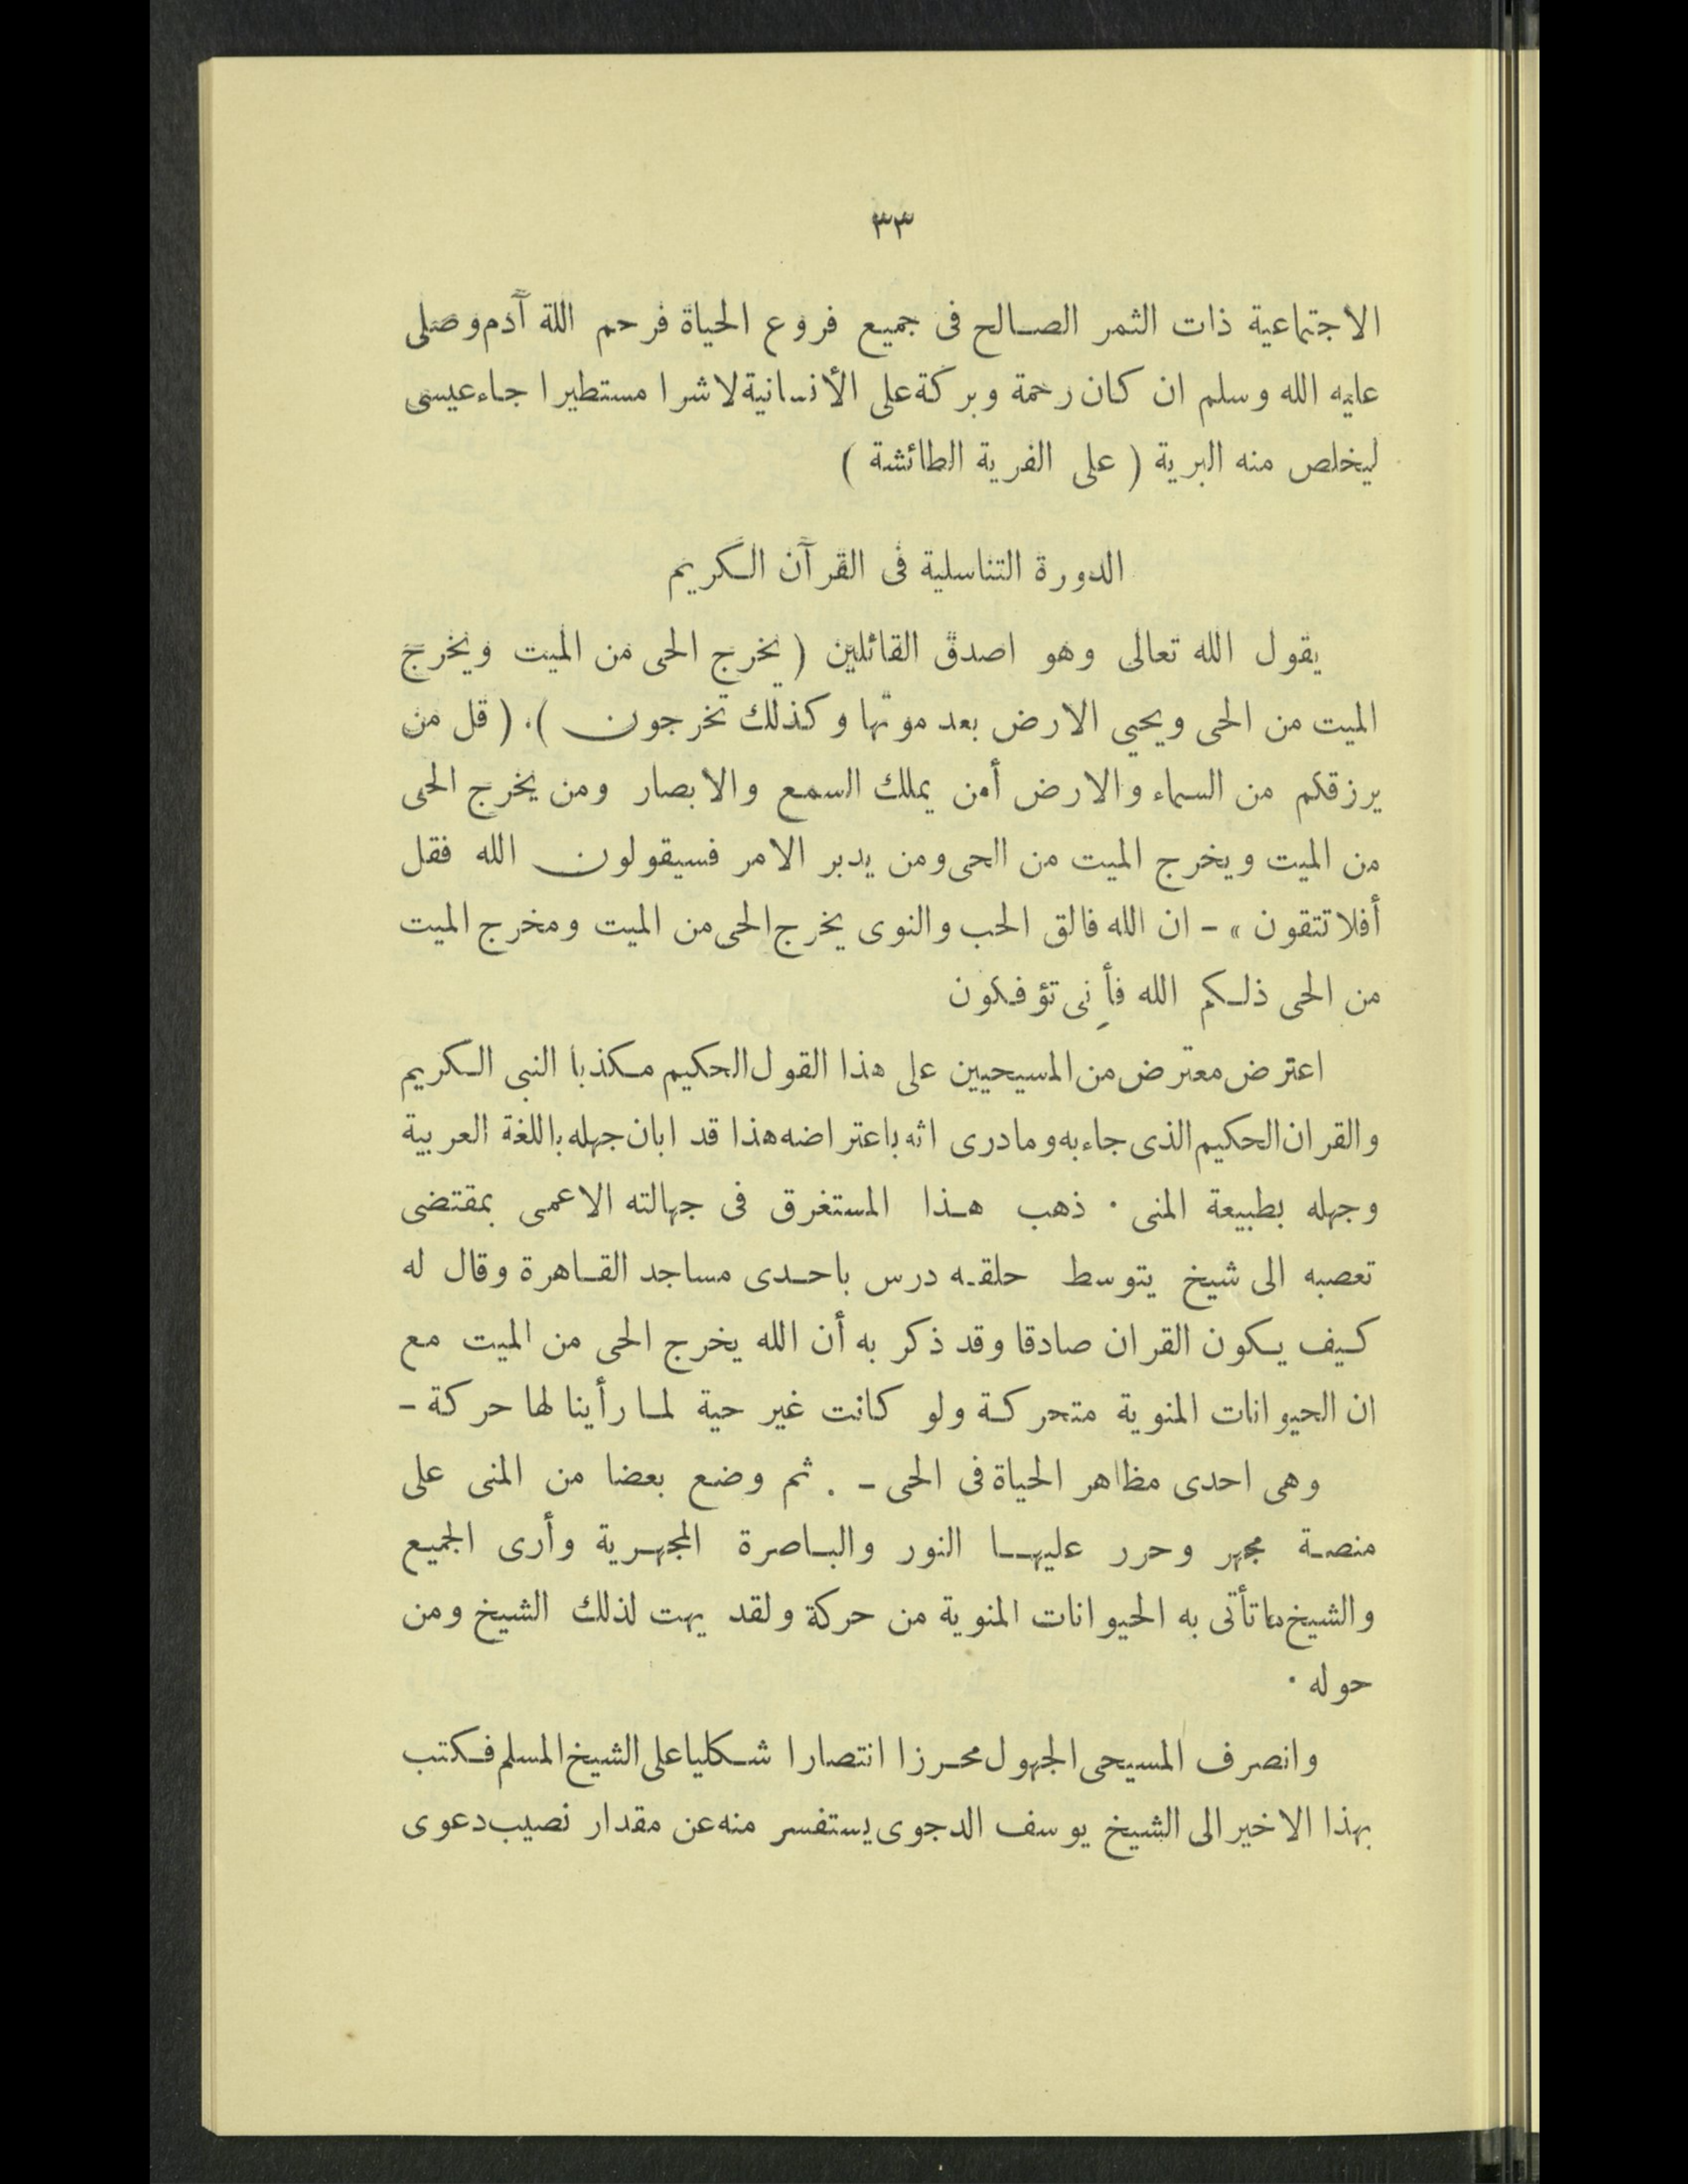 ٣٣
الاجتماعية ذات الثمر الصالح فى جميع فروع الحياة فرحم اللة آدم وصلى
عليه الله وسلم ان كان رحمة وبركة على الأنسانية لا شرا مستطيرا جاء عيسى
ليخلص منه البرية ( على الفرية الطائشة )
الدورة التناسلية فى القرآن الكريم
يقول الله تعالى وهو اصدق القائلين ( يخرج الحى من الميت ويخرج
الميت من الحى ويحيى الارض بعد موتها وكذلك تخرجون ). ( قل من
يرزقكم من السماء والارض أمن يملك السمع والابصار ومن يخرج الحى
من الميت ويخرج الميت من الحى ومن يدبر الامر فسيقولون الله فقل
أفلا تتقون » - ان الله فالق الحب والنوى يخرج الحى من الميت ومخرج الميت
من الحى ذلكم الله فأنى تؤفكون
اعترض معترض من المسيحيين على هذا القول الحكيم مكذبا النبى الكريم
والقران الحكيم الذى جاء به وما درى انه باعتراضه هذا قد ابان جهله باللغة العربية
وجهله بطبيعة المنى . ذهب هذا المستغرق فى جهالته الاعمى بمقتضى
تعصبه الى شيخ يتوسط حلقه درس باحدى مساجد القاهرة وقال له
كيف يكون القران صادقا وقد ذكر به أن الله يخرج الحى من الميت مع
ان الحيوانات المنوية متحركة ولو كانت غير حية لما رأينا لها حركة -
وهى احدى مظاهر الحياة فى الحى - . ثم وضع بعضا من المنى على
منصة مجهر وحرر عليها النور والباصرة المجهرية وأرى الجميع
والشيخ ما تأتى به الحيوانات المنوية من حركة ولقد بهت لذلك الشيخ ومن
حوله .
وانصرف المسيحى الجهول محرزا انتصارا شكليا على الشيخ المسلم فكتب
بهذا الاخير الى الشيخ يوسف الدجوى يستفسر منه عن مقدار نصيب دعوى